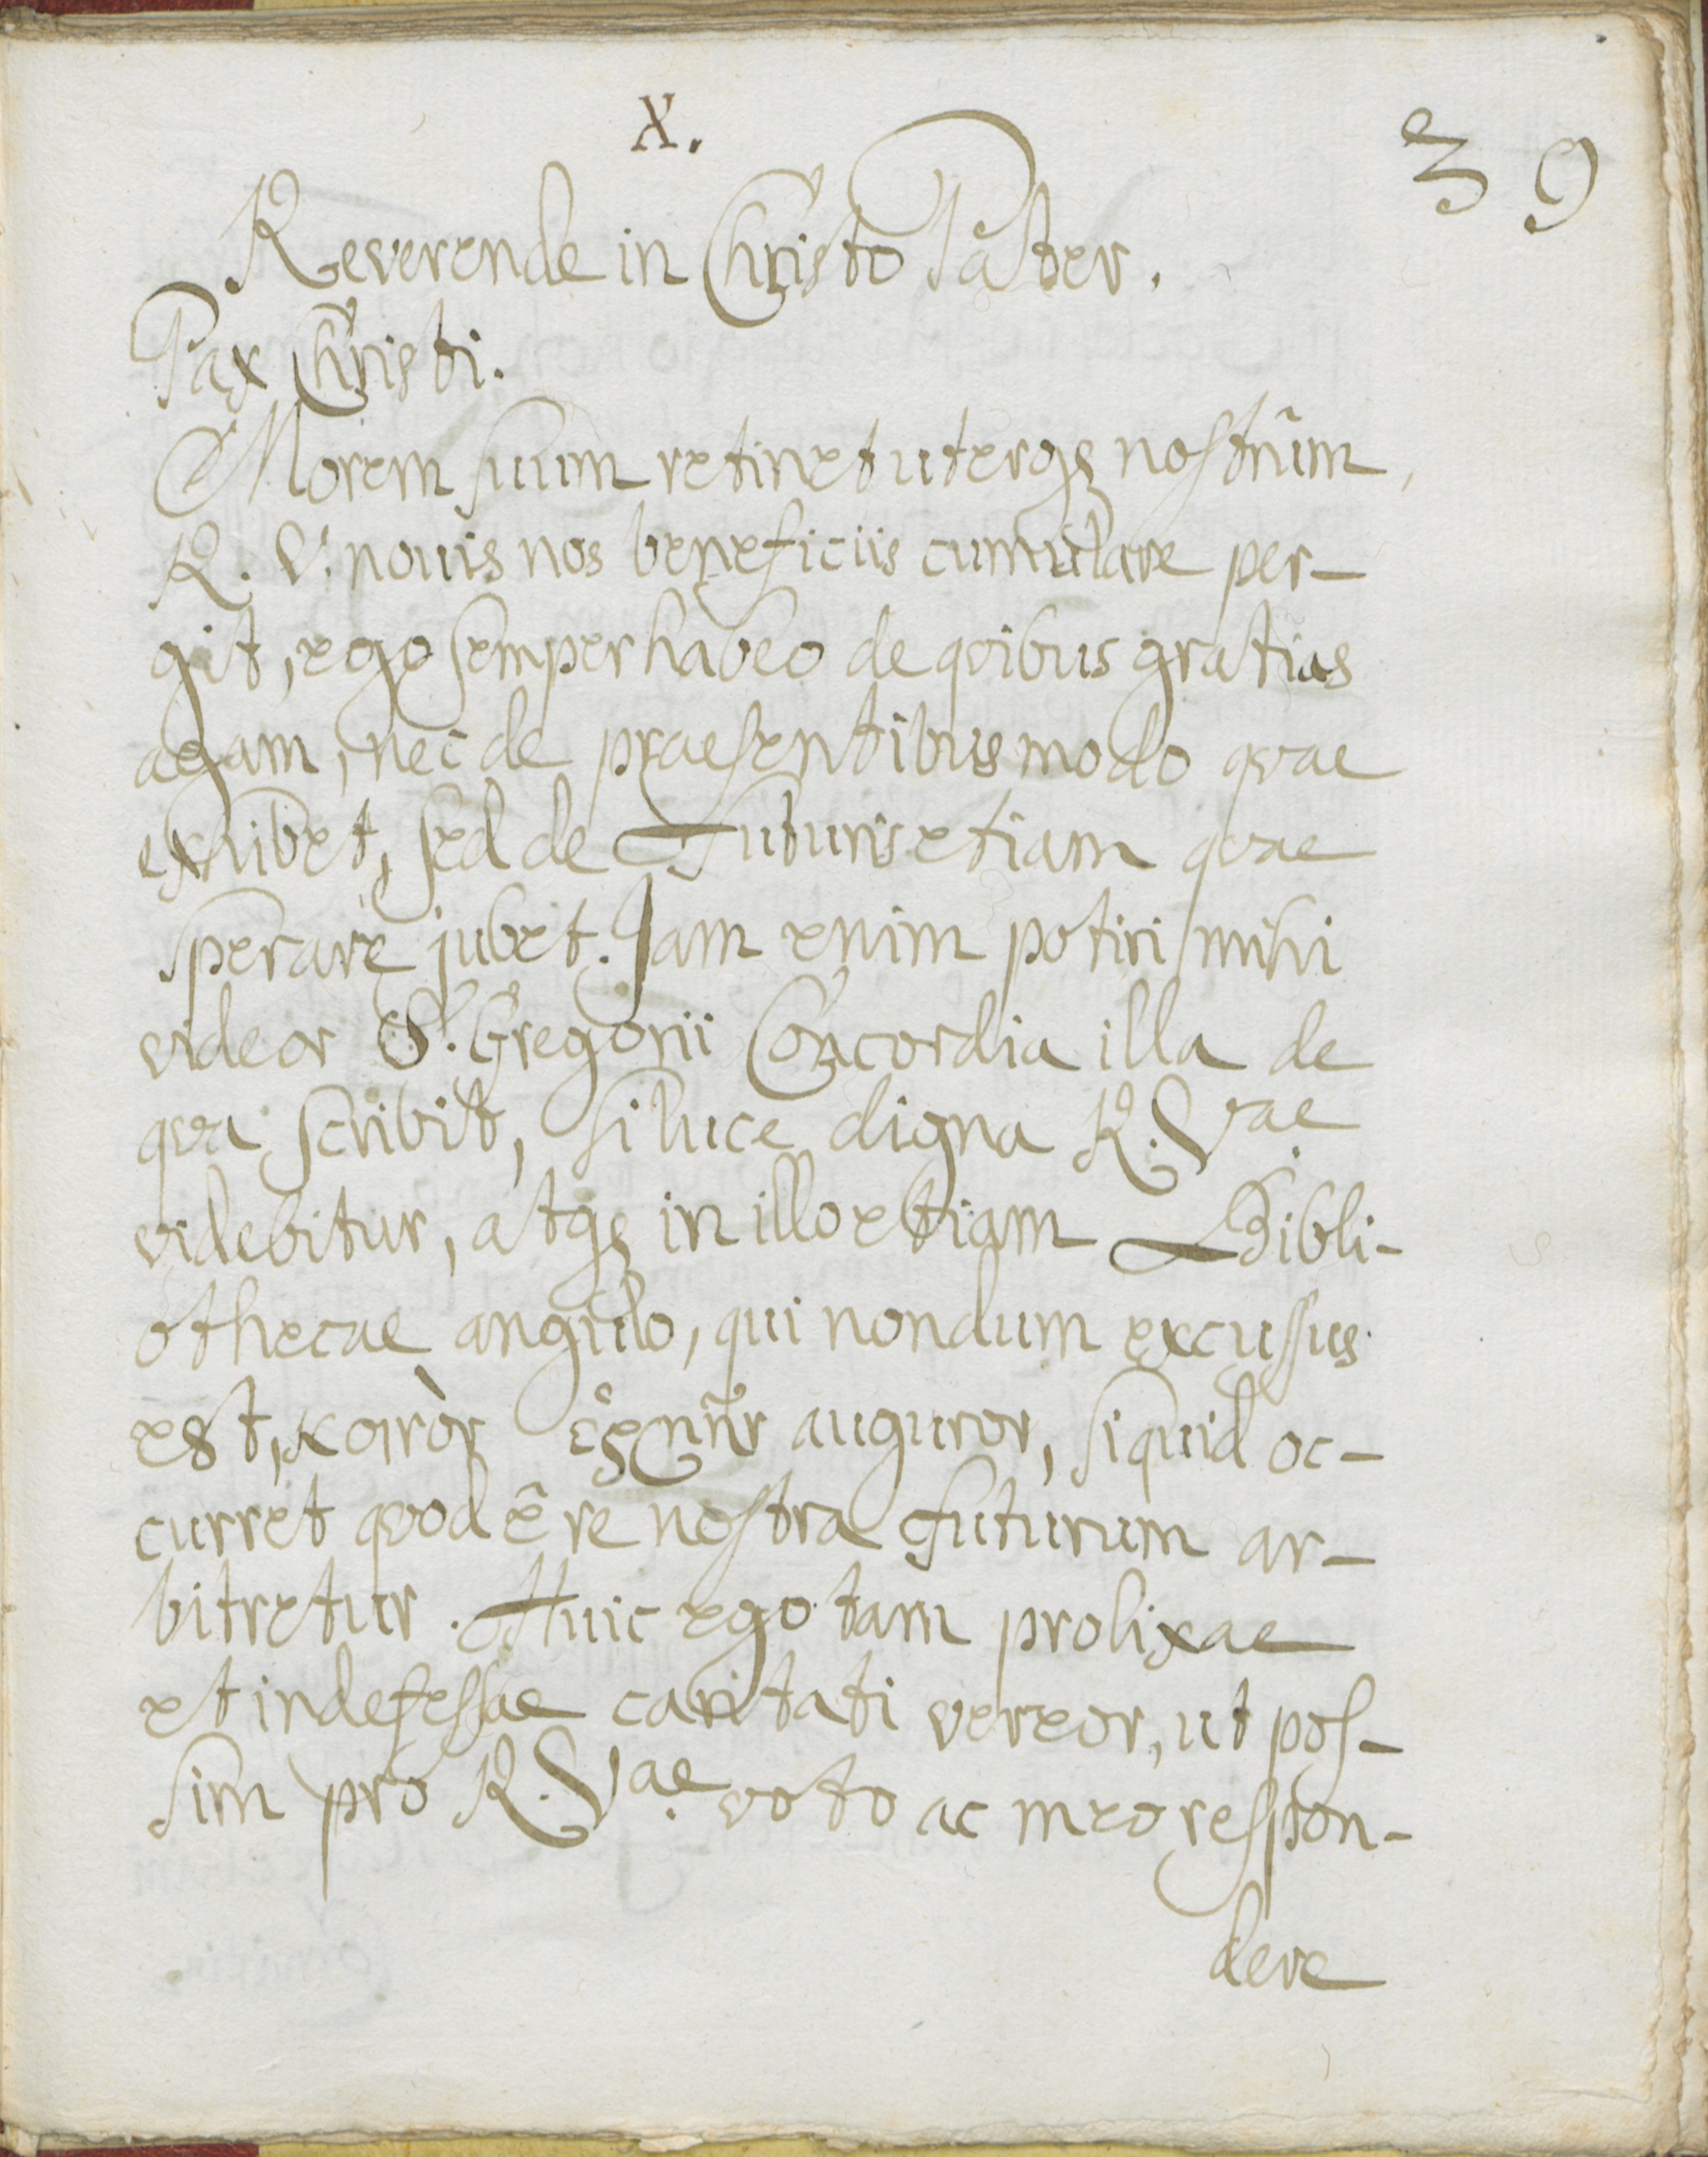 X.
39
Reverende in Christo Pater.
Pax Christi.
Morem suum retinet uterqȝ nostrûm,
R. V. novis nos beneficiis cumulare per-
git, ego semper habeo de quibus gratias
agam, nec de praesentibus modo quae
exhibet, sed de futuris etiam quae
sperare jubet. Jam enim potiri mihi
videor S. Gregorii Concordia illa de
qua scribit, si luce digna R. Vae.
videbitur, atqȝ in illo etiam Bibli-
othecae angulo, qui nondum excussus
est, auguror, siquid oc-
curret quod ê re nostra futurum ar-
bitretur. Huic ego tam prolixae
et indefessae caritati vereor, ut pos-
sim pro R. Vae. voto ac meo respon-
dere